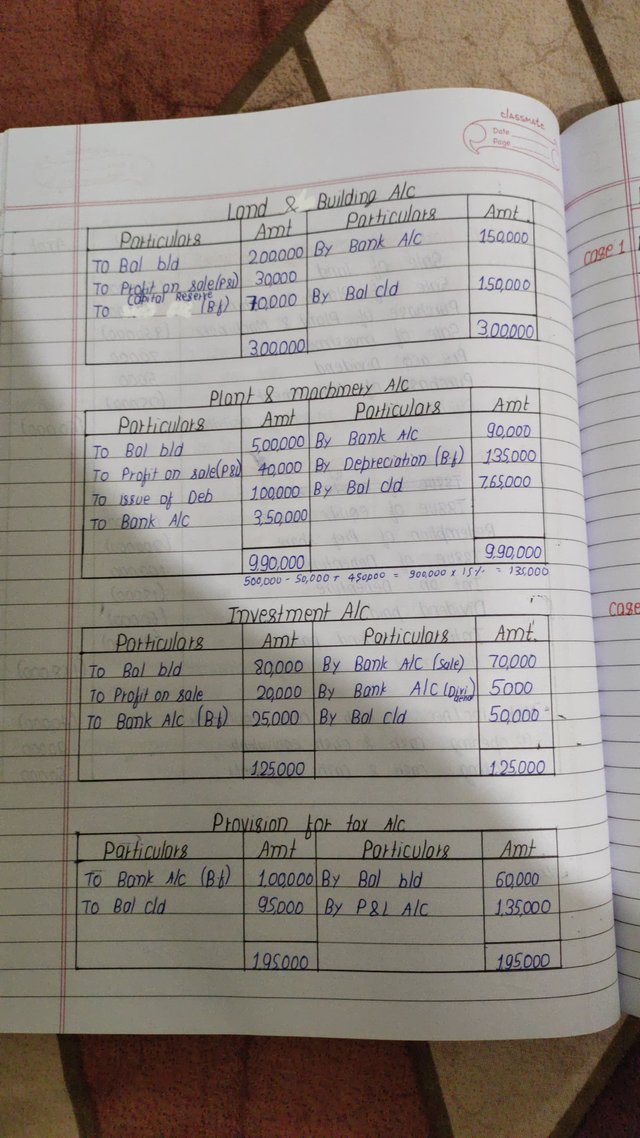 classmate
Date
Page
Land & Building A/c
Particulars Amt Particulars Amt
To Bal b/d 200,000 By Bank A/c 150,000
To Profit on sale(P&L) 30,000
To Capital Reserve (Bf) 70,000 By Bal c/d 150,000
300,000 300,000
Plant & machinery A/c
Particulars Amt Particulars Amt
To Bal b/d 500,000 By Bank A/c 90,000
To Profit on sale(P&L) 40,000 By Depreciation (Bf) 135,000
To issue of Deb 100,000 By Bal c/d 7,65,000
To Bank A/c 3,50,000
9,90,000 9,90,000
500,000 - 50,000 + 450,000 = 900,000 x 15% = 135,000
Investment A/c
Particulars Amt Particulars Amt.
To Bal b/d 80,000 By Bank A/c (sale) 70,000
To Profit on sale 20,000 By Bank A/c (Dividend) 5000
To Bank A/c (Bf) 25,000 By Bal c/d 50,000
1,25,000 1,25,000
Provision for tax A/c
Particulars Amt Particulars Amt
To Bank A/c (Bf) 1,00,000 By Bal b/d 60,000
To Bal c/d 95,000 By P&L A/c 1,35,000
1,95,000 1,95,000
case 1
case